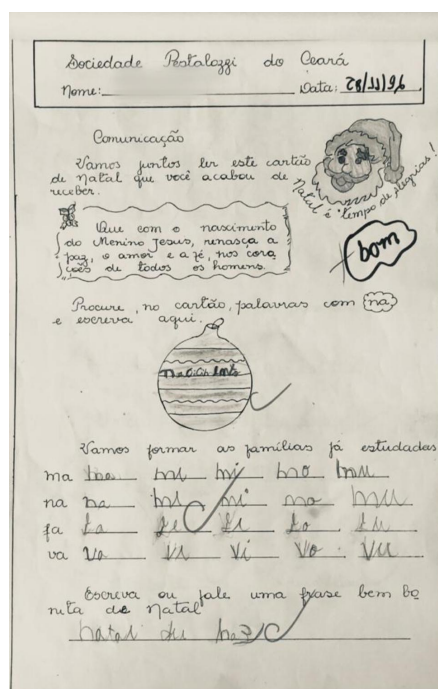 Sociedade Pestalozzi do Ceará
Nome: Data: 28/11/96
Comunicação
Vamos juntos ler este cartão
de Natal que você acabou de
receber.
Natal é tempo de alegrias!
Que com o nascimento
do Menino Jesus, renasça a
paz, o amor e a fé, nos cora
ções de todos os homens.
+ bom
Procure, no cartão, palavras com na
e escreva aqui.
Vamos formar as famílias já estudadas
ma ma mi mo mu
na na mi no mu
fa fa fe fi fo fu
va va vi vo vu
Escreva ou fale uma frase bem bo
nita de Natal
natal